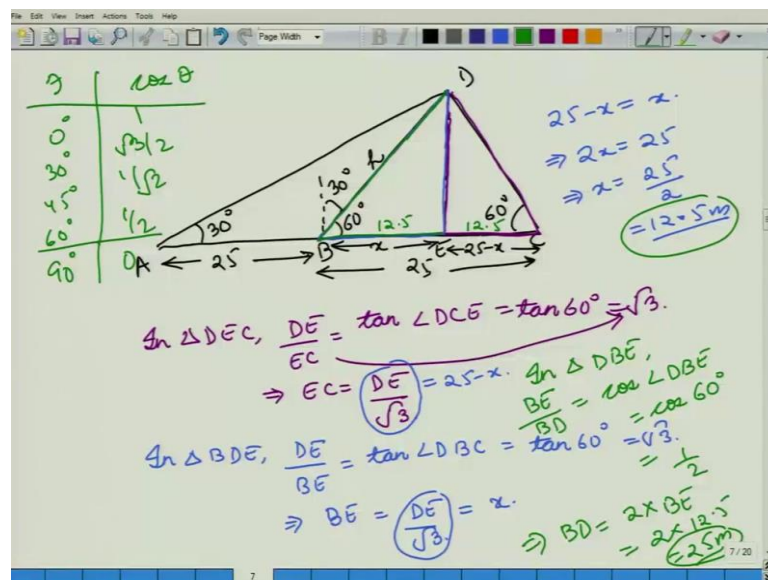 File Edit View Insert Actions Tools Help
Page Width
θ cos θ
0° 1
30° √3/2
45° 1/√2
60° 1/2
90° 0
D
h
30°
30°
60°
12.5
12.5
60°
A
B
x
E
25-x
C
25
25
25-x = x.
⇒ 2x = 25
⇒ x = 25/2
= 12.5m
In Δ DEC, DE/EC = tan ∠DCE = tan 60° = √3.
⇒ EC = DE/√3 = 25-x.
In Δ BDE, DE/BE = tan ∠DBC = tan 60° = √3.
⇒ BE = DE/√3 = x.
In Δ DBE,
BE/BD = cos ∠DBE
= cos 60°
= 1/2
⇒ BD = 2 × BE
= 2 × 12.5
= 25m
7/20
7